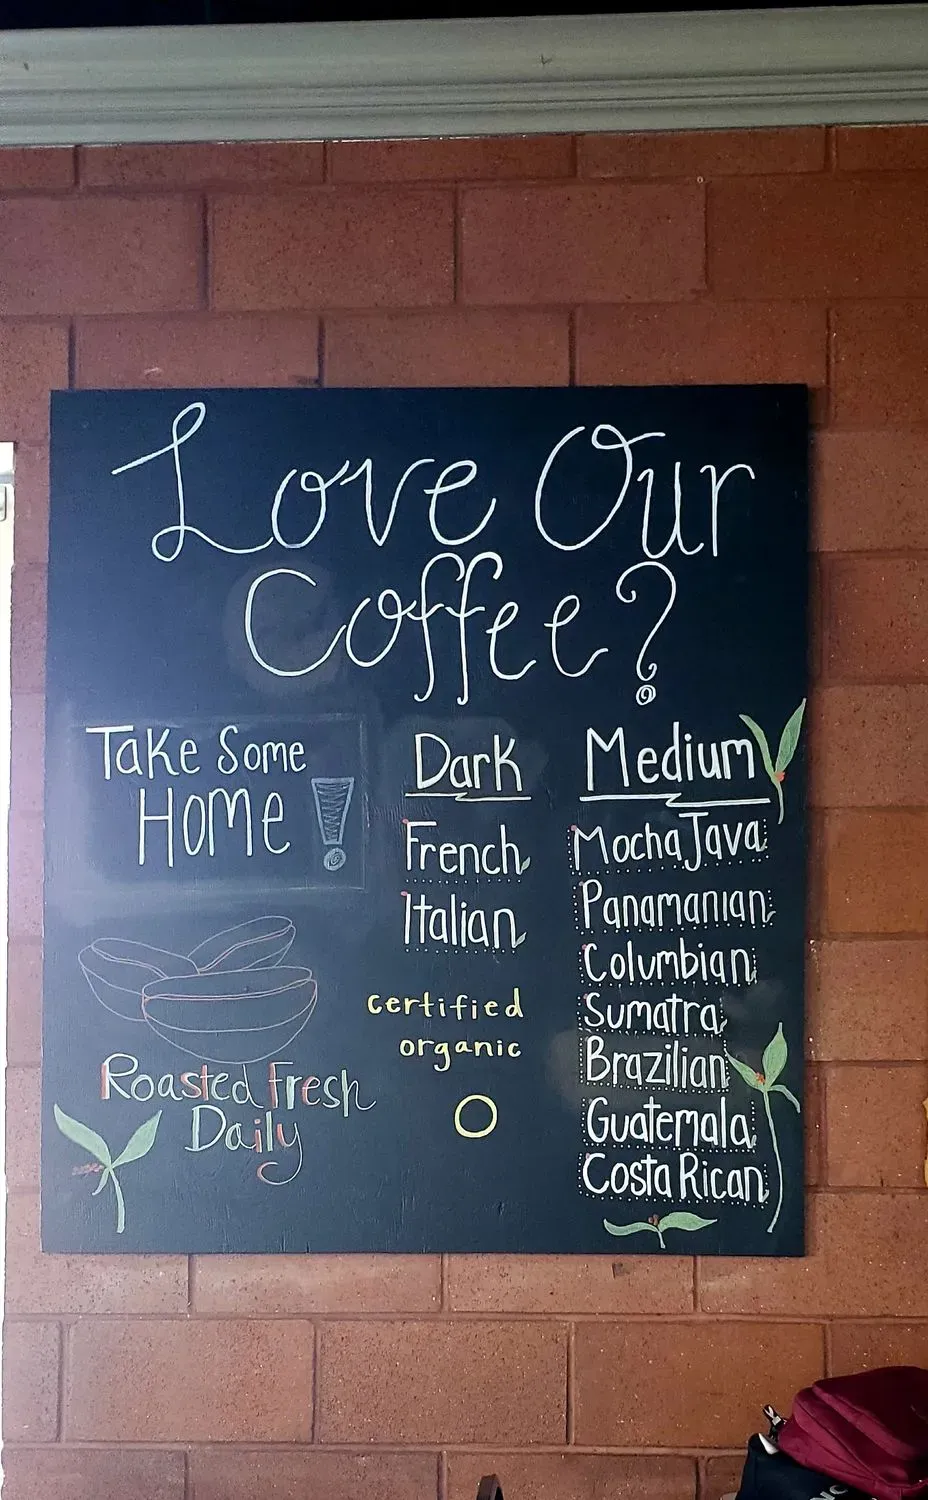 Love Our
Coffee?
Take Some
Home!
Dark
French
Italian
certified
organic
Medium
Mocha Java
Panamanian
Columbian
Sumatra
Brazilian
Guatemala
Costa Rican
Roasted Fresh
Daily